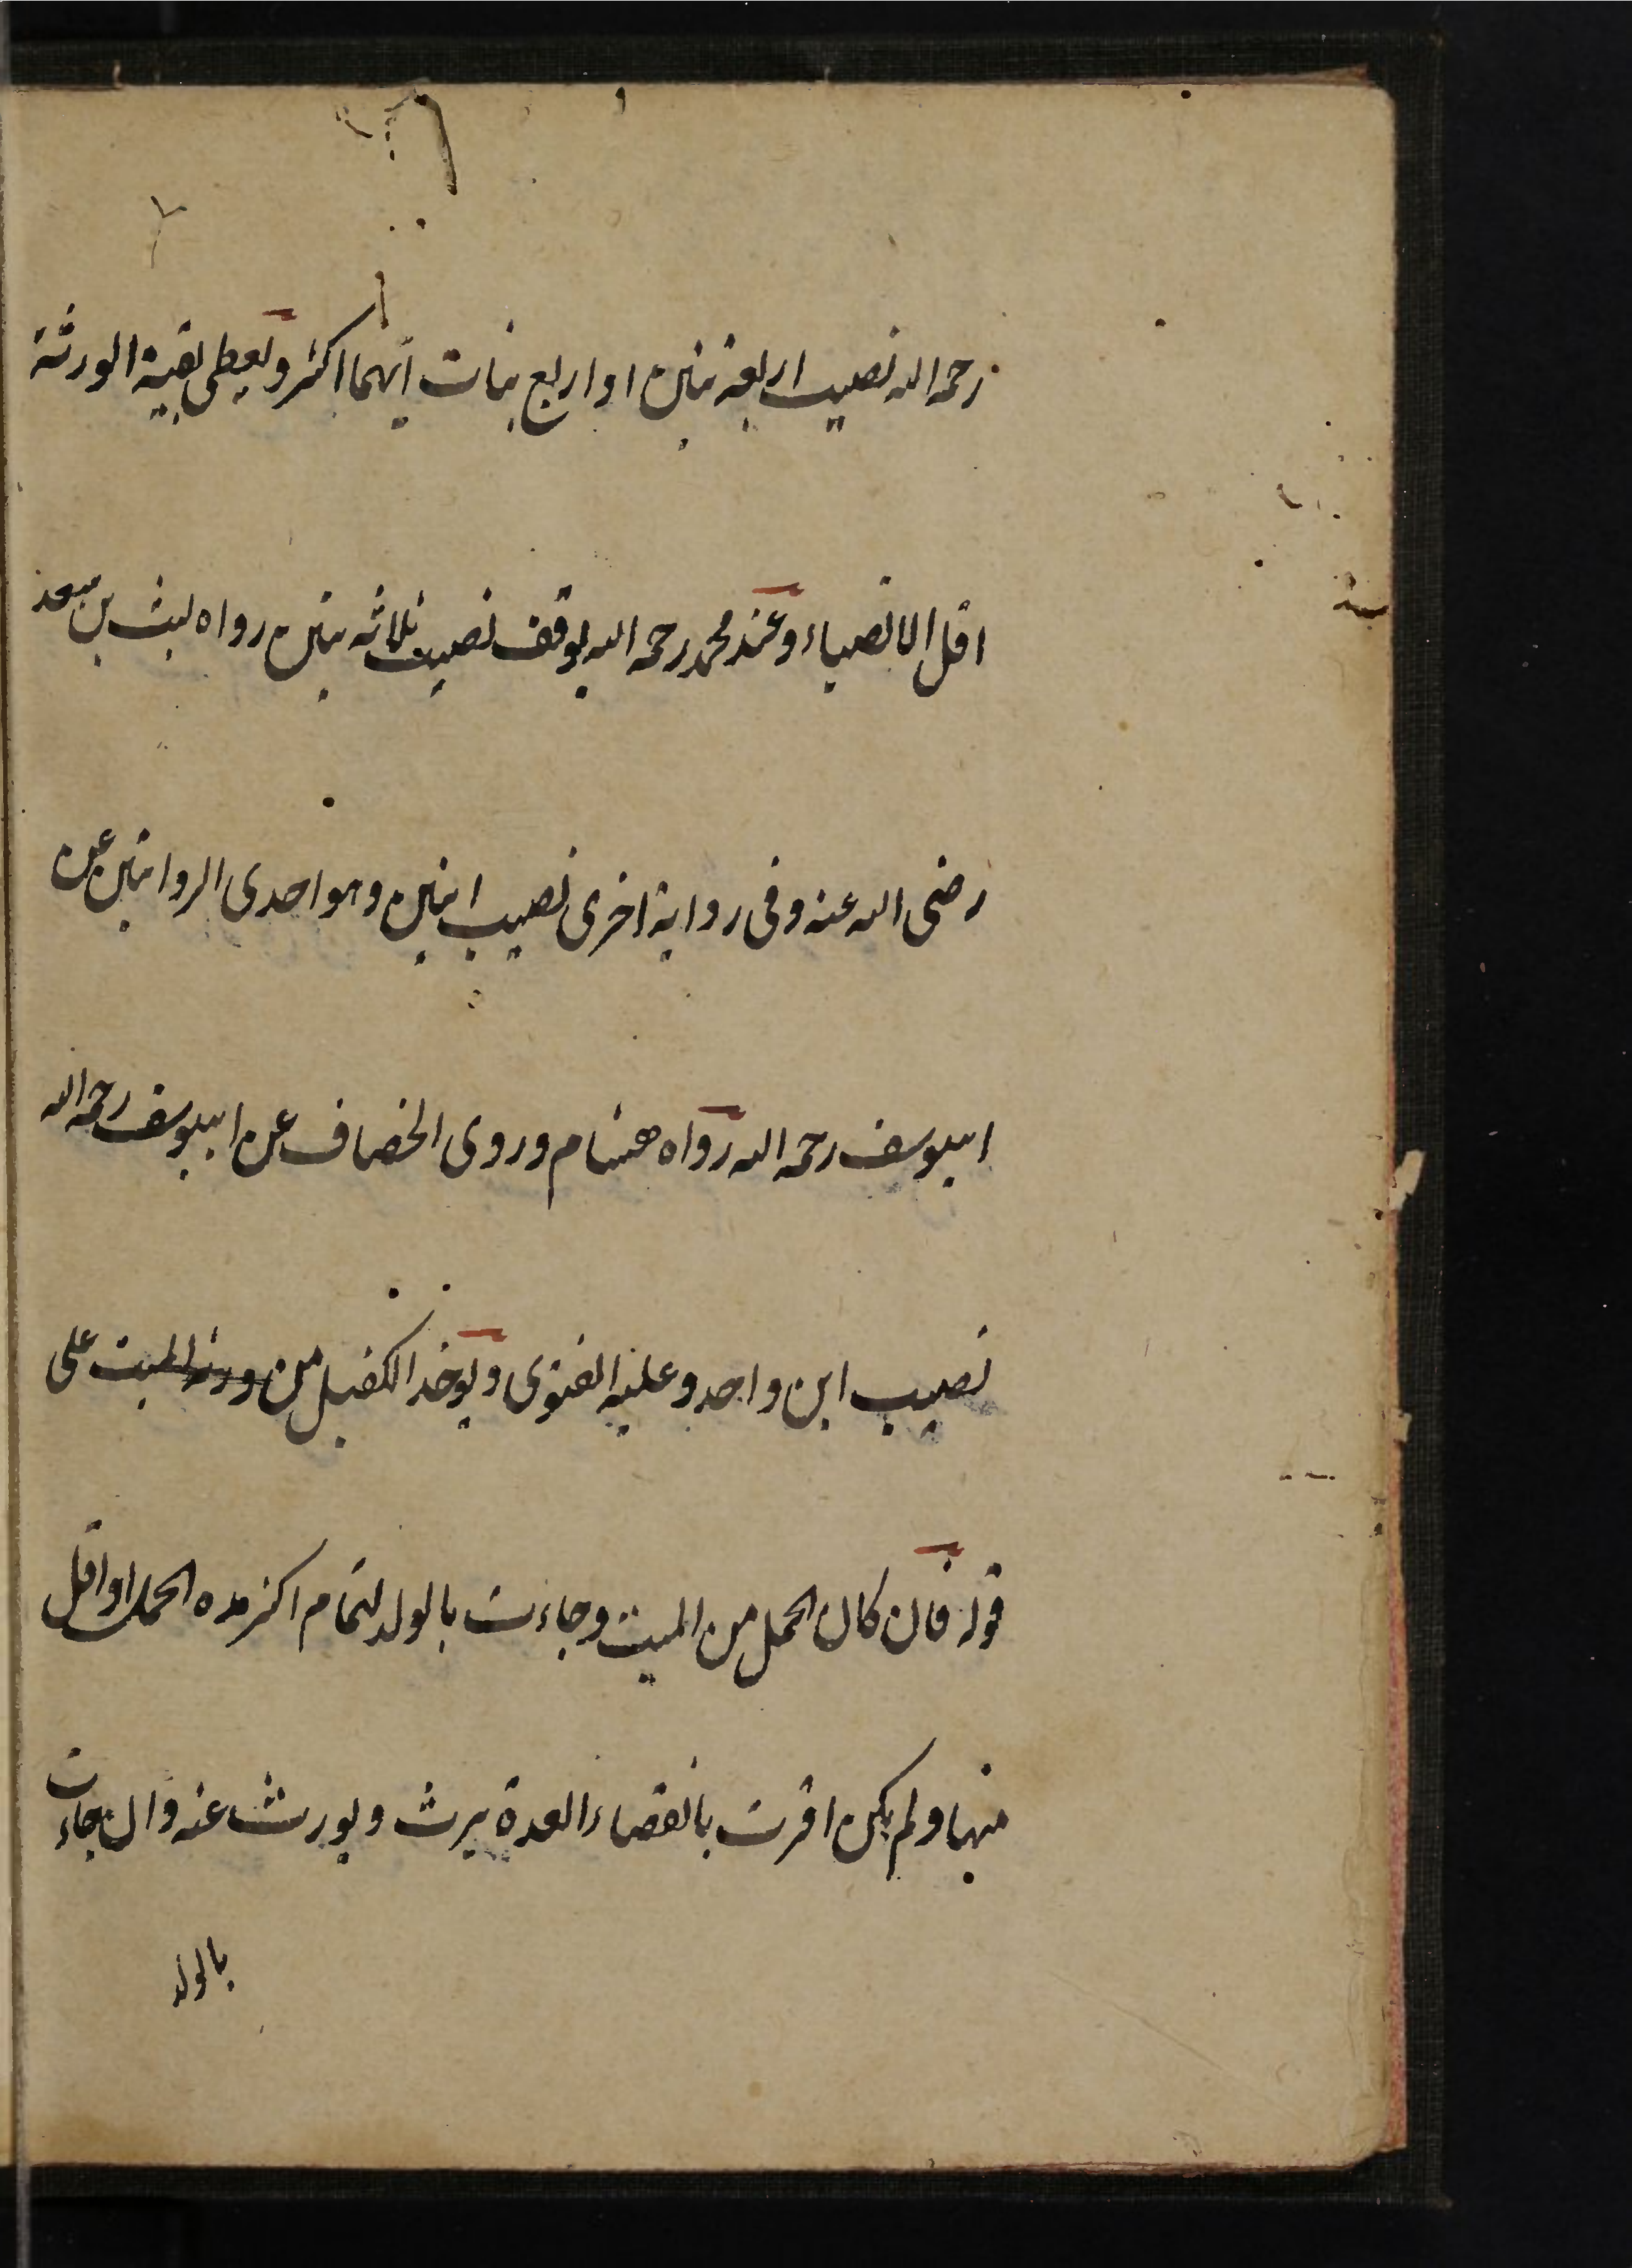 رحمه الله نصيب اربعة بنين او اربع بنات ايهما اكثر ويعطى بقية الورثة
اقل الانصباء وعند محمد رحمه الله يوقف نصيب ثلاثه بنين رواه ليث بن سعد
رضى الله عنه وفى رواية اخرى نصيب ابنين وهو احدى الروايتين عن
ابيوسف رحمه الله رواه هشام وروى الخصاف عن ابيوسف رحمه الله
نصيب ابن واحد وعليه الفتوى ويوخذ الكفيل من ورثة الميت على
قوله فان كان الحمل من الميت وجاءت بالولد لتمام اكثر مده الحمل او اقل
منها ولم يكن اقرت بانقضاء العدة يرث ويورث عنه وان جاءت
بالولد